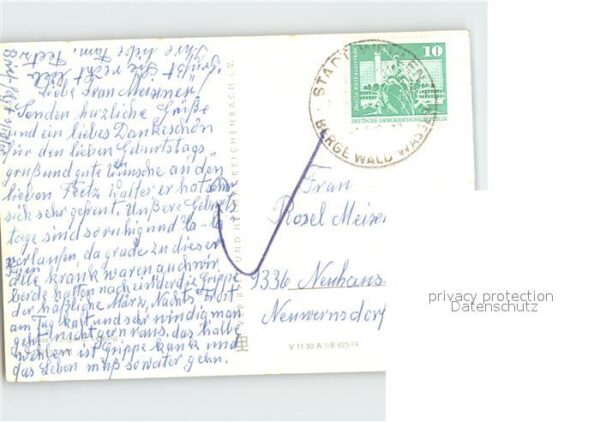 Liebe Frau Meixner!
Senden herzliche Grüße
und ein liebes Dankeschön
für den lieben Geburtstags-
gruß und gute Wünsche an den
lieben er hat
sich sehr gefreut. Unsere Geburts
tage sind so ruhig und
verlaufen, da grade zu dieser
alle krank waren auch wir
beide hatten nacheinander die Grippe
der häßliche März, Nachts Frost
am Tag kalt und sehr windig man
geht nicht gern raus. das halbe
ist Grippe krank und
das Leben muß so weiter gehn.
grüßt Sie recht
Ihre liebe Fam.
10
DEUTSCHE DEMOKRATISCHE REPUBLIK
STADT
BERGE WALD WASSER
Frau
Rosel
9336 Neuhaus
Neuwernsdorf
V 11 50 A 1/B 625/74
privacy protection
Datenschutz